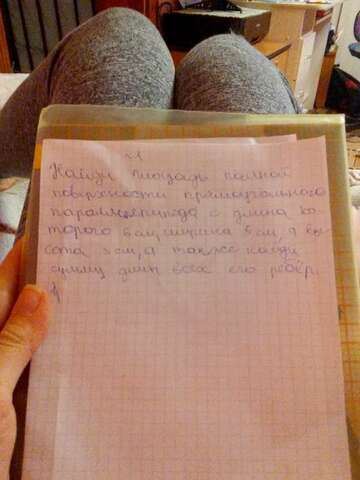 №1
Найди площадь полной
поверхности прямоугольного
параллелепипеда с длина ко
торого 6 см, ширина 5 см, а вы
сота см, а также найди
сумму длин всех его рёбер.